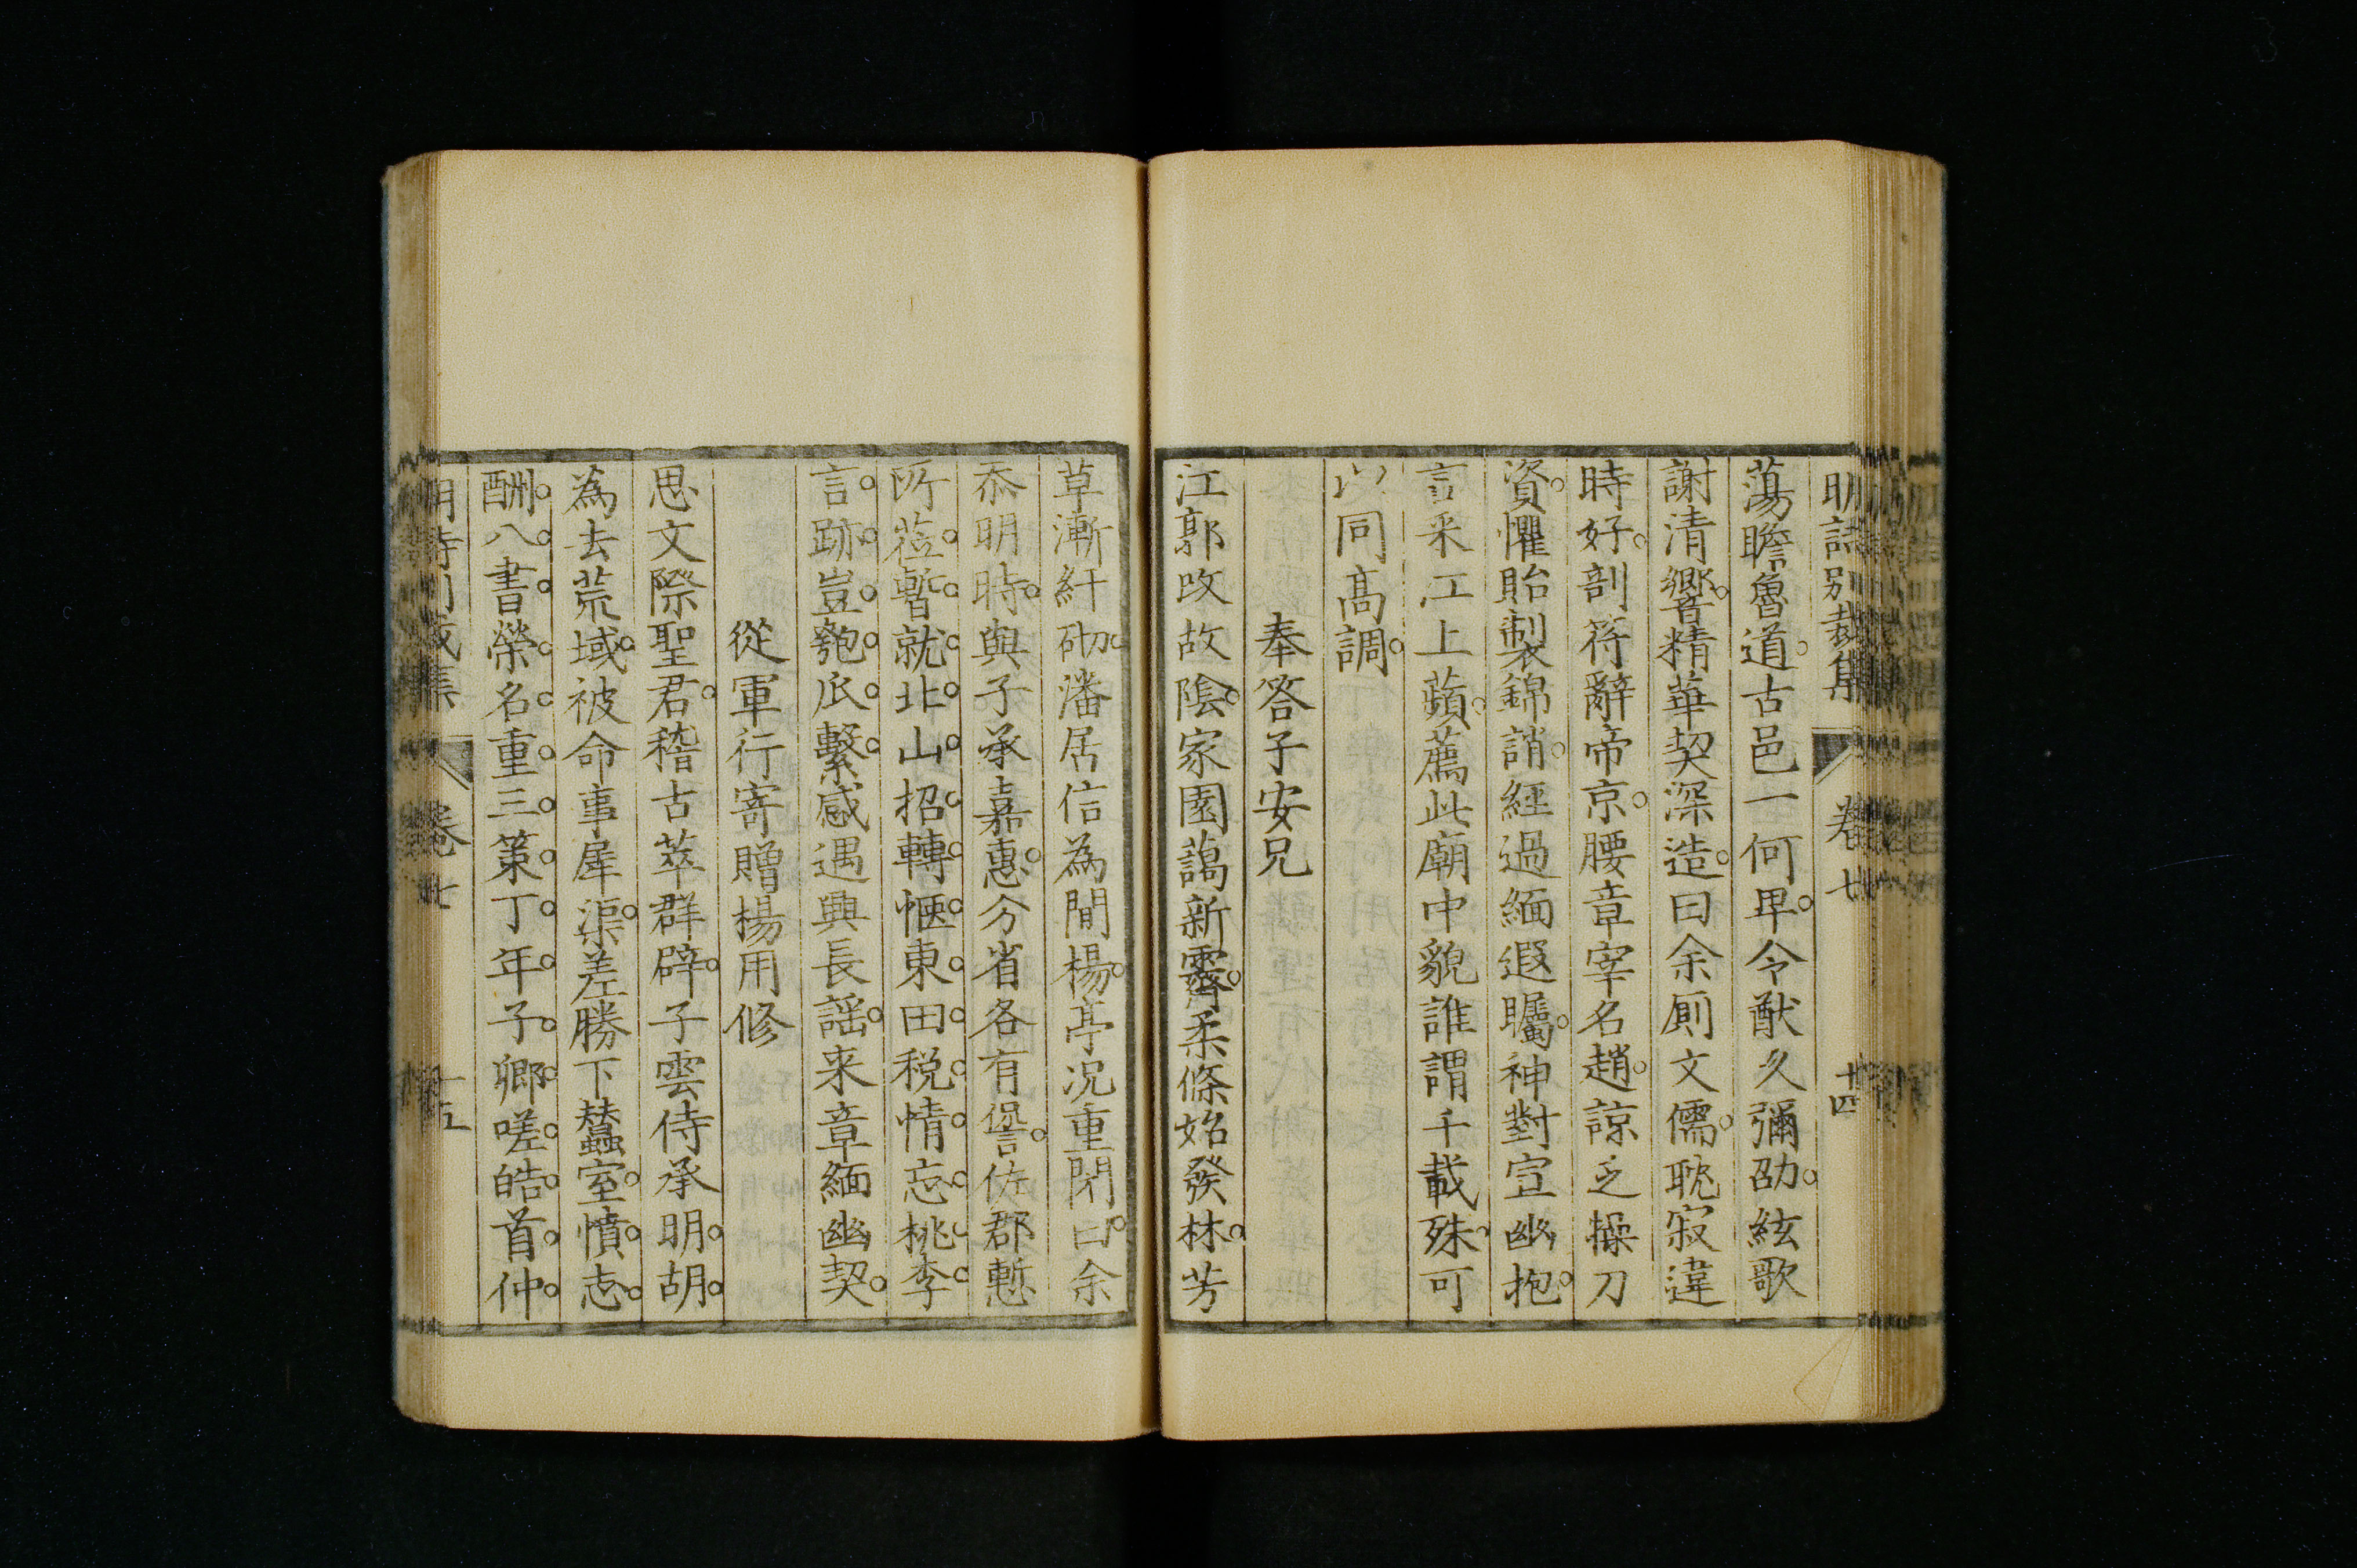 明詩別裁集 卷七 十四
蕩瞻魯道古邑一何卑令猷久彌劭絃歌
謝清響精華契深造曰余厠文儒耽寂違
時好剖符辭帝京腰章宰名趙諒乏操刀
資懼貽製錦誚經過緬遐矚神對宣幽抱
言采江上蘋薦此廟中貌誰謂千載殊可
以同高調
奉答子安兄
江郭改故陰家園藹新霽柔條始發林芳
草漸紆砌潘居信為閒楊亭况重閉曰余
忝明時與子承嘉惠分省各有譽佐郡慙
所蒞暫就北山招轉愜東田税情忘桃李
言跡豈匏瓜繫感遇興長謡来章緬幽契
從軍行寄贈楊用修
思文際聖君稽古萃群辟子雲侍承明胡
為去荒域被命事犀渠差勝下蠶室憤志
酬八書榮名重三策丁年子卿嗟皓首仲
明詩別裁集 卷七 十五